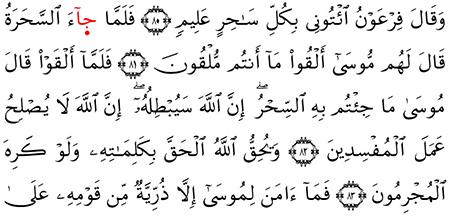 وَقَالَ فِرْعَوْنُ ائْتُونِي بِكُلِّ سَٰحِرٍ عَلِيمٍ ﴿٨٠﴾ فَلَمَّا جَآءَ السَّحَرَةُ
قَالَ لَهُم مُّوسَىٰٓ أَلْقُوا۟ مَآ أَنتُم مُّلْقُونَ ﴿٨١﴾ فَلَمَّآ أَلْقَوْا۟ قَالَ
مُوسَىٰ مَا جِئْتُم بِهِ السِّحْرُ ۖ إِنَّ اللَّهَ سَيُبْطِلُهُۥٓ ۖ إِنَّ اللَّهَ لَا يُصْلِحُ
عَمَلَ الْمُفْسِدِينَ ﴿٨٢﴾ وَيُحِقُّ اللَّهُ الْحَقَّ بِكَلِمَٰتِهِۦ وَلَوْ كَرِهَ
الْمُجْرِمُونَ ﴿٨٣﴾ فَمَآ ءَامَنَ لِمُوسَىٰٓ إِلَّا ذُرِّيَّةٌ مِّن قَوْمِهِۦ عَلَىٰ